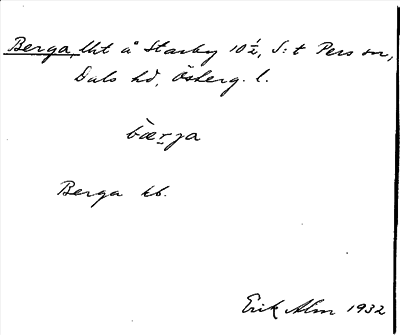 Berga, lht å Starby 10½, S:t Pers sn,
Dals hd, Österg. l.
bæ̀rja
Berga kb.
Erik Alm 1932